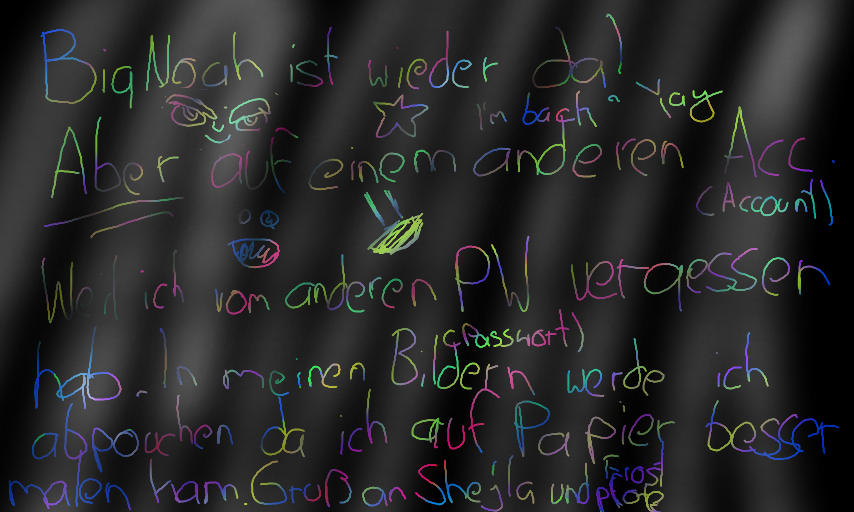 BigNoah ist wieder da!
I'm back. Yay
Aber auf einem anderen Acc.
(Account)
Weil ich vom anderen PW vergessen
(Passwort)
hab. In meinen Bildern werde ich
abpauchen da ich auf Papier besser
malen kann. Gruß an Shejla und Frost
pfote